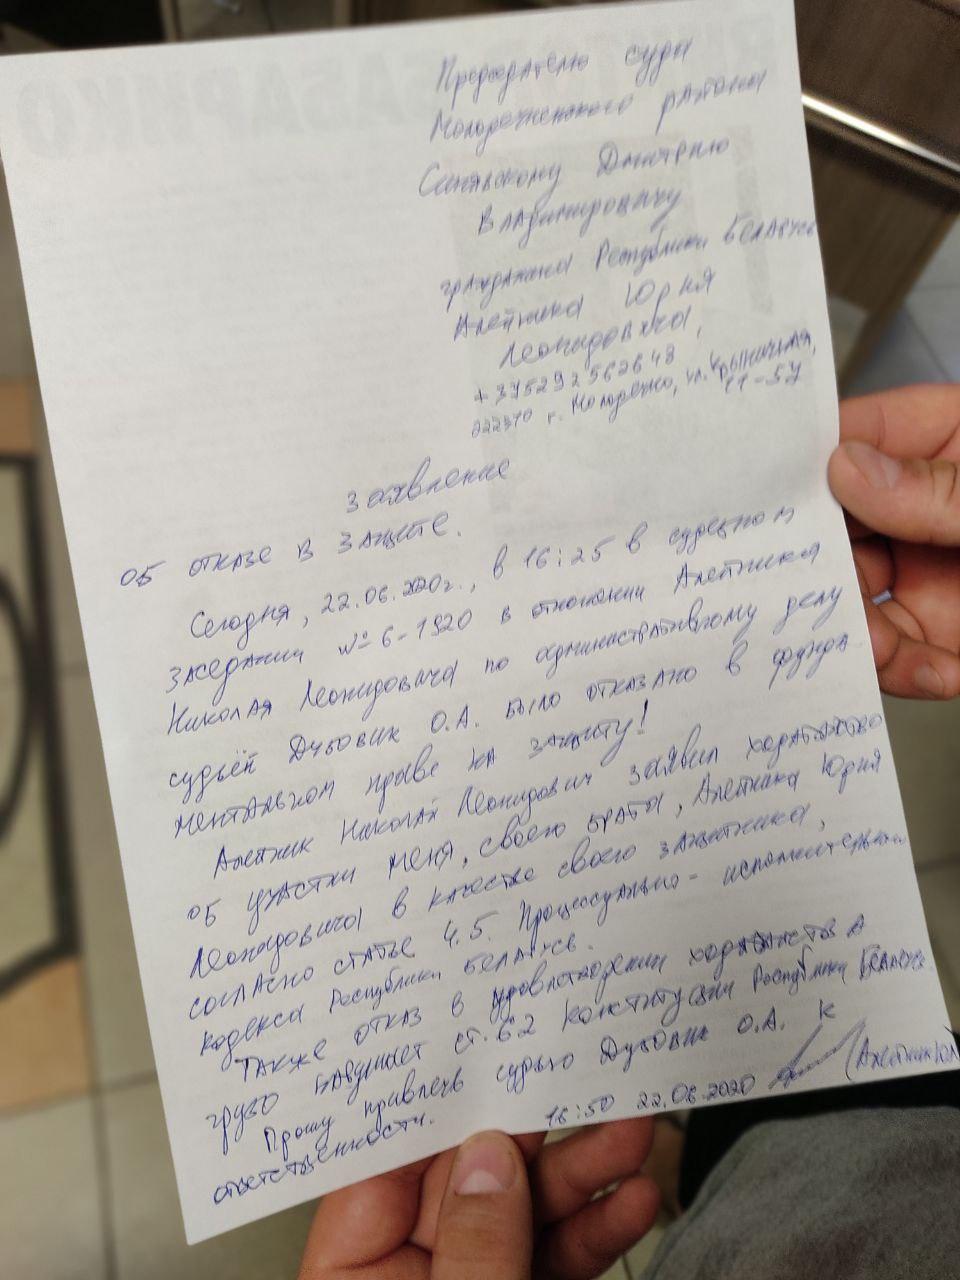 Председателю суда
Молодечненского района
Синявскому Дмитрию
Владимировичу
гражданина Республики Беларусь
Алетника Юрия
Леонидовича,
+375292562648
222310 г. Молодечно, ул. Крыничная,
11-57
Заявление
об отказе в защите.
Сегодня, 22.06.2020г., в 16:25 в судебном
заседании № 6-1920 в отношении Алетника
Николая Леонидовича по административному делу
судьёй Дубовик О.А. было отказано в фунда-
ментальном праве на защиту!
Алетник Николай Леонидович заявил ходатайство
об участии меня, своего брата, Алетника Юрия
Леонидовича в качестве своего защитника,
согласно статье 4.5. Процессуально-исполнительного
кодекса Республики Беларусь.
Также отказ в удовлетворении ходатайства
грубо нарушает ст. 62 Конституции Республики Беларусь.
Прошу привлечь судью Дубовик О.А. к
ответственности.
16:50 22.06.2020 (Алетник Ю.Л
БАБАРИКО